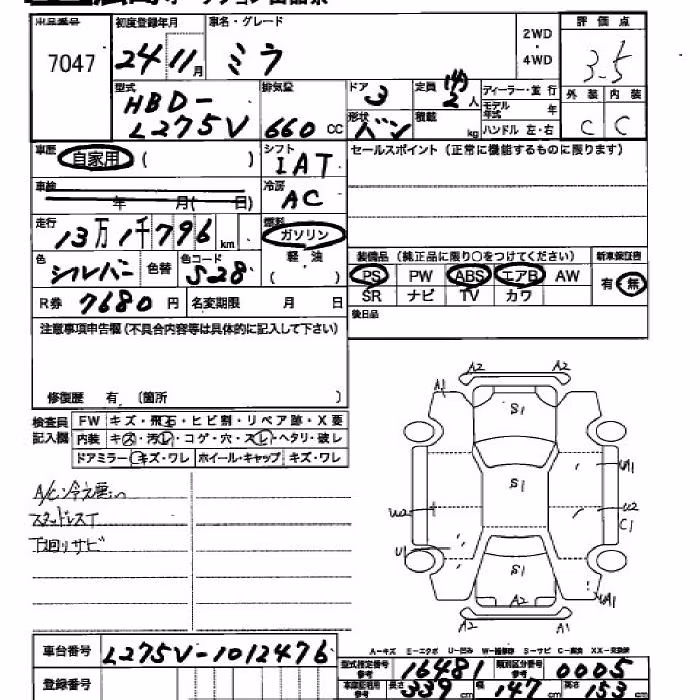 出品番号 初度登録年月 車名・グレード 2WD・4WD 評価点
7047 24 11月 ミラ 3.5
型式 排気量 ドア 定員 ディーラー・並行 外装 内装
HBD- 3 (4) 2人 モデル年式 年 C C
L275V 660CC 形状 バン 積載 kg ハンドル 左・右
車歴 自家用 ( ) シフト セールスポイント (正常に機能するものに限ります)
IAT
車検 年 月( 日) 冷房 AC
走行 13万1千796km 燃料 ガソリン
軽油
( )
色 シルバー 色替 色コード S28
装備品 (純正品に限り○をつけてください) 新車保証書
PS PW ABS エアB AW 有・無
SR ナビ TV カワ
R券 7680円 名変期限 月 日 後日品
注意事項申告欄(不具合内容等は具体的に記入して下さい)
修復歴 有 (箇所 )
検査員記入欄 FW キズ・飛石・ヒビ割・リペア跡・X要
内装 キズ・汚レ・コゲ・穴・スレ・ヘタリ・破レ
ドアミラー キズ・ワレ ホイール・キャップ キズ・ワレ
A/C冷え悪い
スタッドレスT
下回りサビ
A2 A2
A1 S1
S1 UA1
U2 U2
C1
U1
S1
A2 UA1
A2 A1
A-キズ E-エクボ U-凹み W-補修跡 S-サビ C-腐食 XX-交換済
車台番号 L275V-1012476
型式指定番号 参考 16481 類別区分番号 参考 0005
登録番号
長さ 339cm 幅 147cm 高さ 153cm